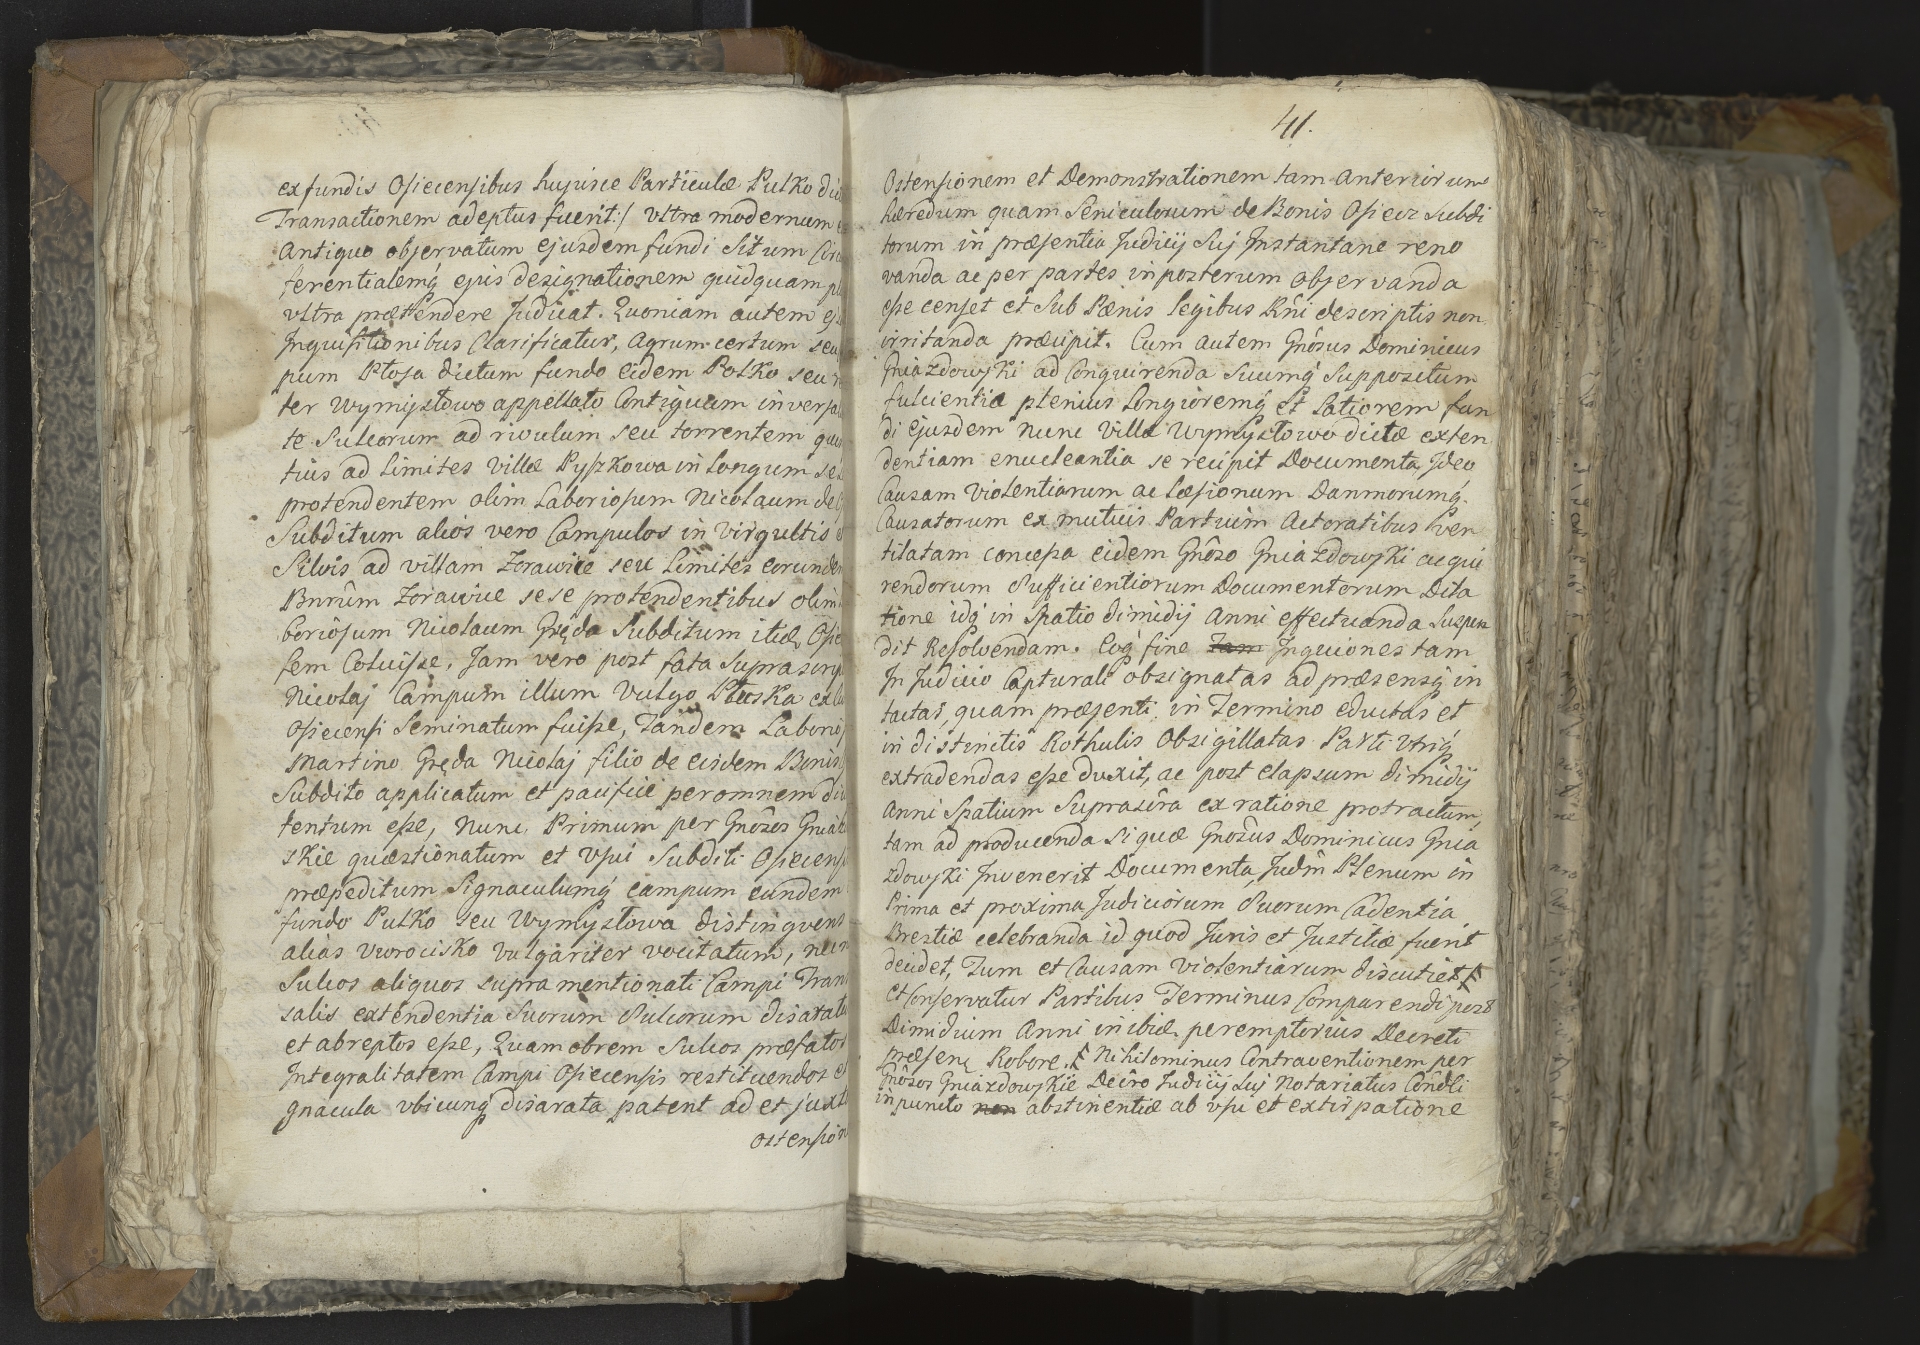 ex fundis Osiecensibus hujusce Particulæ Pulko
Transactionem adeptus fuerit:/ ultra modernum
Antiquo observatum ejusdem fundi Situm
ferentialemq́ ejus designationem quidquam
ultra prætendere Judicat. Quoniam autem
Inquisitionibus Clarificatur, Agrum certum seu
pum Ptosa dictum fundo eidem Polko seu
ter Wymysłowo appellato Contiguum in versa
te Sulcorum ad rivulum seu torrentem
tius ad Limites Villæ Pyszkowa in Longum
protendentem olim Laboriosum Nicolaum de
Subditum alios vero Campulos in virgultis
Silvis ad villam Zorawice seu Limites eorundem
Bnrûm Zorawice sese protendentibus olim
boriosum Nicolaum Gręda Subditum itid
sem Coluisse, Jam vero post fata Suprascrip
Nicolaj Campum illum vulgo Ploska
Osiecensi Seminatum fuisse, Tandem Laborios
Martino Gręda Nicolaj filio de eisdem Bonis
Subdito applicatum et pacifice per omnem
tentum esse, Nunc Primum per Gnôsos Gniaz
skie quæstionatum et Usui Subditi Osiecens
præpeditum Signaculumq́ campum eundem
fundo Pulko seu Wymysłowa distinguens
alias Uwrocisko vulgariter vocitatum, nec
Sulcos aliquos supra mentionati Campi Tran
salis extendentia Suorum Sulcorum disarata
et abreptos esse, Quamobrem Sulcos præfatos
Integralitatem Campi Osiecensis restituendos
gnacula ubicunq́ disarata patent ad et juxta
ostension
41.
Ostensionem et Demonstrationem tam Anteriorum
hæredum quam Seniculorum de Bonis Osiecz Subdi
torum in præsentia Judicij Sui Instantane reno
vanda ac per partes in posterum observanda
esse censet et Sub Pænis Legibus Rni descriptis non
irritanda præcipit. Cum autem Gnôsus Dominicus
Gniazdowski ad Conquirenda Suumq́ Suppositum
fulcientia plenius Longioremq́ et Latiorem fun
di ejusdem nunc Villæ Wymysłowo dictæ exten
dentiam enucleantia se recipit Documenta, Ideo
Causam Violentiarum ac Læsionum Damnorumq́
Causatorum ex mutuis Partium Actoratibus ven
tilatam concessa eidem Gnôso Gniazdowski acqui
rendorum Sufficientiorum Documentorum Dila
tione idq́ in Spatio dimidij Anni effectuanda Suspen
dit Resolvendam. Eoq́ fine Tam Inquiones tam
In Judicio Capturali obsignatas ad præsensq́ in
tactas, quam præsenti in Termino eductas et
in distinctis Rothulis Obsigillatas Parti Utriq́
extradendas esse duxit, ac post elapsum dimidij
Anni Spatium Suprascra ex ratione protractum,
tam ad producenda si quæ Gnôsus Dominicus Gnia
zdowski Invenerit Documenta, Judm Plenum in
Prima et proxima Judiciorum Suorum Cadentia
Brestiæ celebranda id quod Juris et Justitiæ fuerit
decidet, Tum et Causam violentiarum discutiet
et Conservatur Partibus Terminus Comparendi post
Dimidium Anni in ibid peremptorius Decreti
præsens Robore. Nihilominus Contraventionem per
Gnôsos Gniazdowskie Decro Judicij Sui Notariatus Côndli
in puncto non abstinentiæ ab Usu et extirpatione